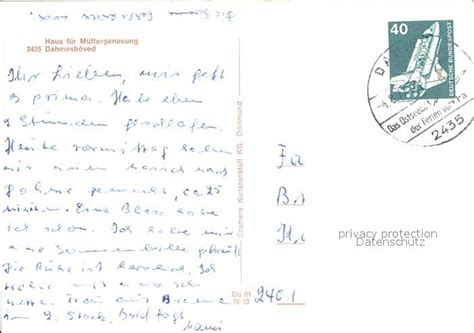 Die Sonne
Haus für Müttergenesung
2435 Dahmeshöved
Ihr Lieben, mir geht
es prima. Habe eben
2 Stunden geschlafen.
Heute vormittag haben
wir einen Marsch nach
Dahme gemacht, ca. 25
Minuten. Eine Blase habe
ich schon. Ich habe mir
eine Sonnenbrille gekauft.
Die Ruhe ist herrlich. Ich
habe nette
Frau aus Bremen
im 2. Stock. Brief folgt
Cramers Kunstanstalt KG, Dortmund
Da 01
2401
40
DEUTSCHE BUNDESPOST
Das Ostseebad
der Ferienfreude
2435
Fa
Br
privacy protection
Datenschutz